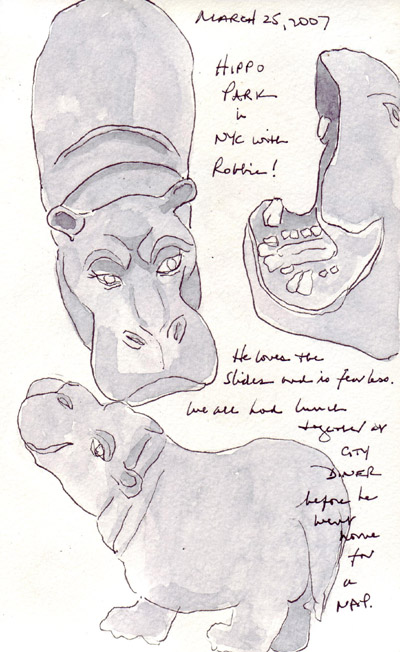 MARCH 25, 2007
HIPPO
PARK
in
NYC with
Robbie!
He loves the
slides and is fearless.
We all had lunch
together at
CITY
DINER
before he
went
home
for
a
NAP.